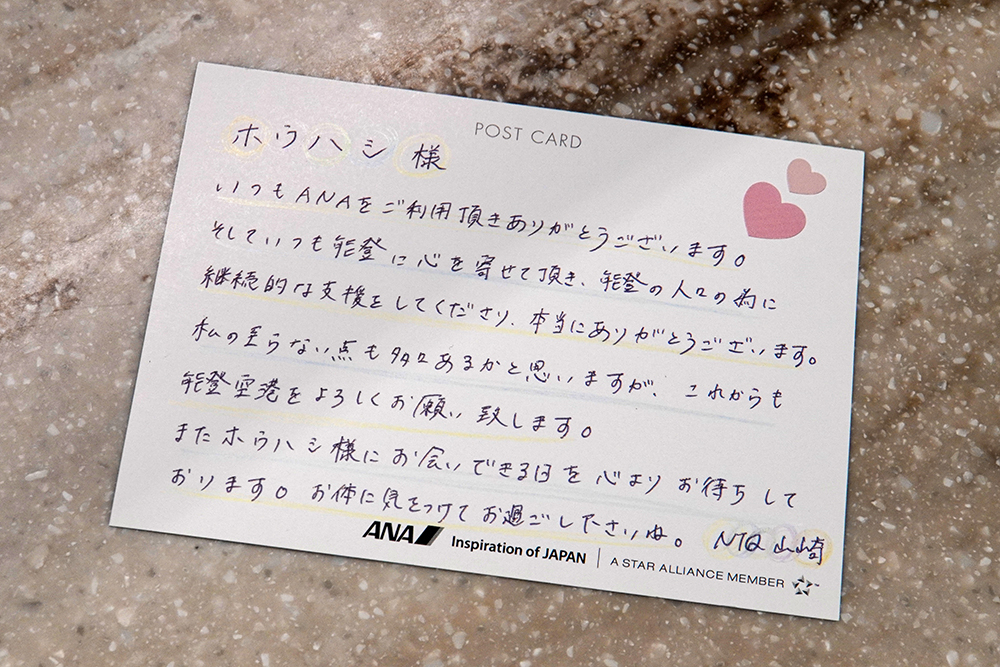 POST CARD
ホウハシ 様
いつもANAをご利用頂きありがとうございます。
そしていつも能登に心を寄せて頂き、能登の人々の為に
継続的な支援をしてくださり、本当にありがとうございます。
私の至らない点も多々あるかと思いますが、これからも
能登空港をよろしくお願い致します。
またホウハシ様にお会いできる日を心よりお待ちして
おります。お体に気をつけてお過ごし下さいね。 NTQ 山崎
ANA Inspiration of JAPAN | A STAR ALLIANCE MEMBER